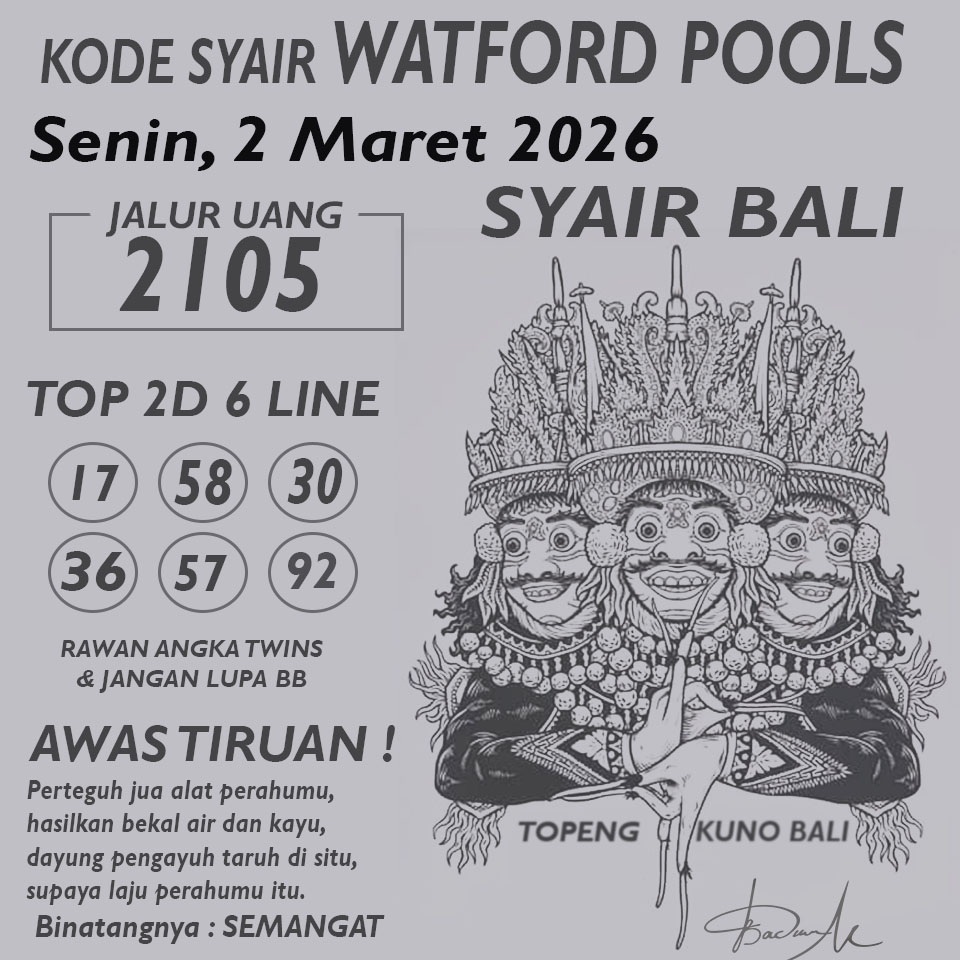 KODE SYAIR WATFORD POOLS
Senin, 2 Maret 2026
SYAIR BALI
JALUR UANG
2105
TOP 2D 6 LINE
17 58 30
36 57 92
RAWAN ANGKA TWINS
& JANGAN LUPA BB
AWAS TIRUAN !
Perteguh jua alat perahumu,
hasilkan bekal air dan kayu,
dayung pengayuh taruh di situ,
supaya laju perahumu itu.
Binatangnya : SEMANGAT
TOPENG KUNO BALI